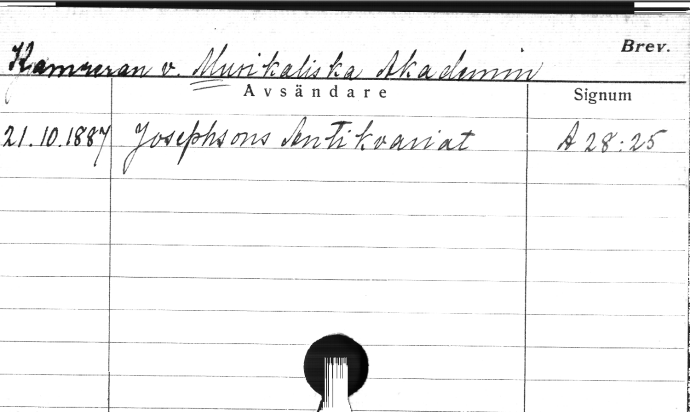 Brev.
Kamreran v. Musikaliska Akademin
Avsändare Signum
21.10.1887 Josephsons Antikvariat A 28:25